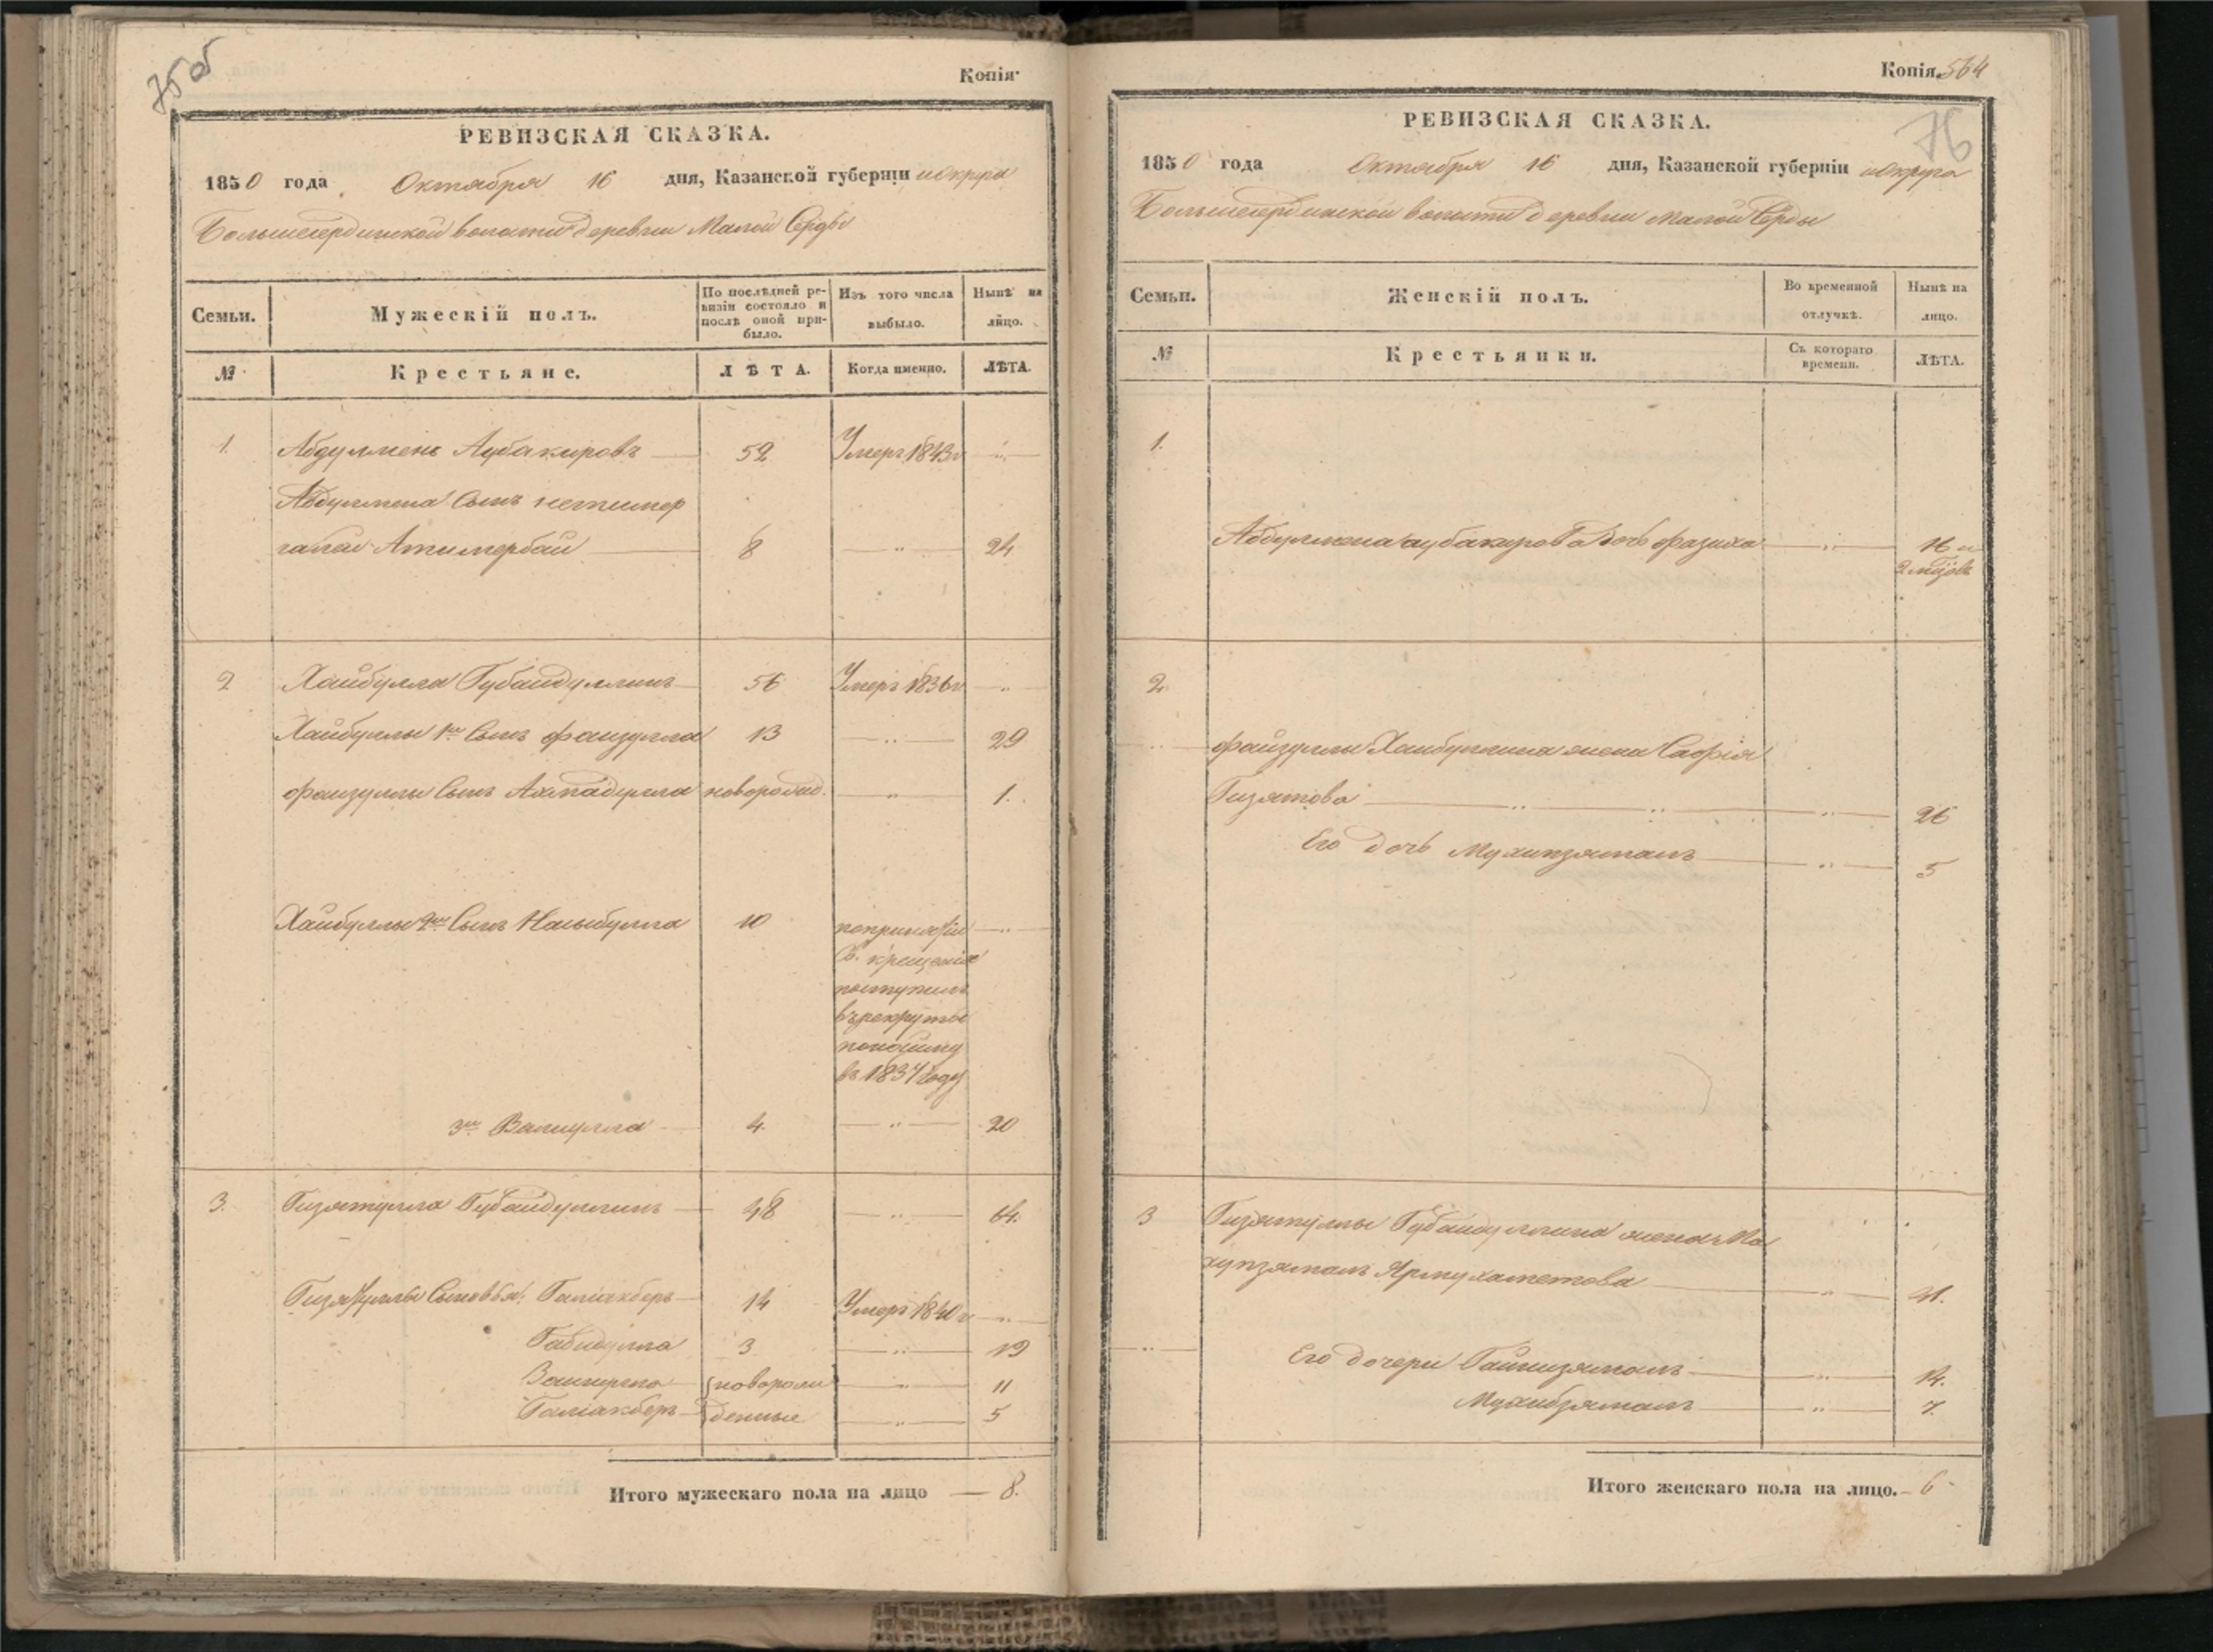 75 об
Копія
РЕВИЗСКАЯ СКАЗКА.
1850 года Октября 16 дня, Казанской губерніи и округа
Большесердинской волости деревни Малой Серды
Семьи.
Мужескій полъ.
По послѣдней ре-
визіи состояло и
послѣ оной при-
было.
Изъ того числа
выбыло.
Нынѣ на
лицо.
№
Крестьяне.
ЛѢТА.
Когда именно.
ЛѢТА.
1. Абдулменъ Аубакировъ 52 Умеръ 1843 г
Абдулмена Сынъ
8 24
2 Хайбулла Губайдуллинъ 56 Умеръ 1836 г
Хайбуллы 1й Сынъ Файзулла 13 29
Файзуллы Сынъ Ахмадулла новорожд. 1.
Хайбуллы 2й Сынъ 10 по принятіи
Св. крещенія
поступилъ
въ рекруты
въ 1834 году
3й Валиулла 4. 20
3. Гизятулла Губайдуллинъ 48 64.
Гизятуллы Сыновья: Галіакберъ 14 Умеръ 1840 г
Габидулла 3 19
новорож 11
Галіакберъ денные 5
Итого мужескаго пола на лицо 8.
Копія. 564
76
РЕВИЗСКАЯ СКАЗКА.
1850 года Октября 16 дня, Казанской губерніи и округа
Большесердинской волости деревни Малой Серды
Семьи.
Женскій полъ.
Во временной
отлучкѣ.
Нынѣ на
лицо.
№
Крестьянки.
Съ котораго
времени.
ЛѢТА.
1.
Абдулмена Аубакирова дочь Фазиха 16 и
2 мѣсц
2.
Файзуллы Хайбуллина жена Сафія
Гизятова 26
Его дочь 5
3 Гизятуллы Губайдуллина жена Ма
хупзямалъ Ярмухаметова 41.
Его дочери Гайнизямалъ 14.
Мухибзямалъ 7.
Итого женскаго пола на лицо. 6